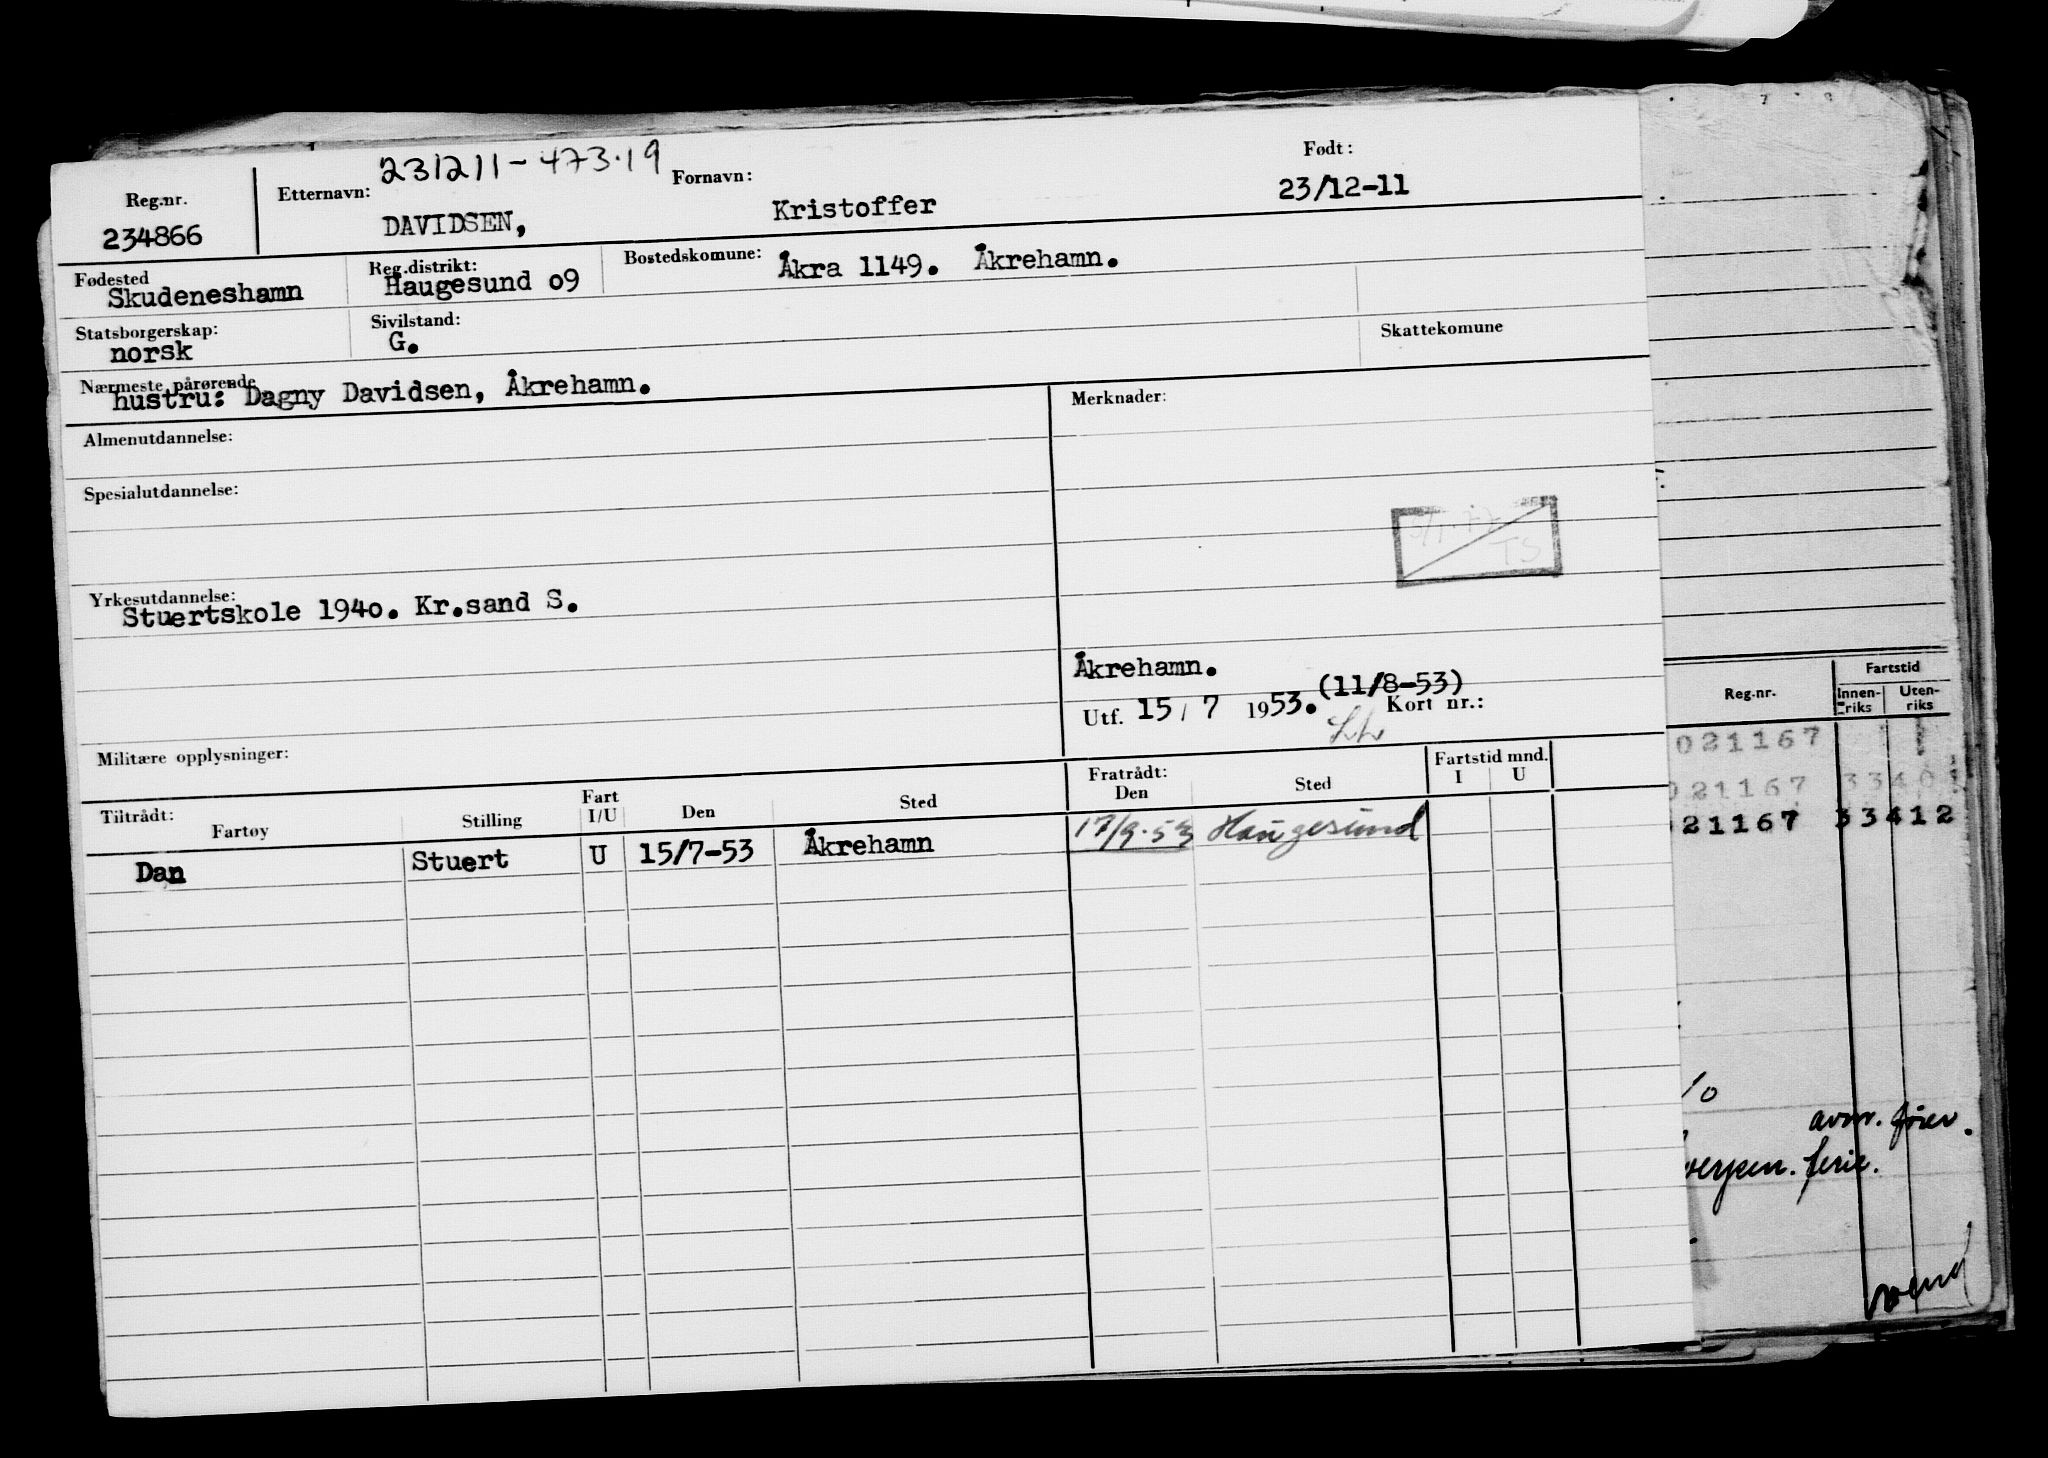 231211-473.19
Reg.nr. Etternavn: Fornavn: Født:
234866 DAVIDSEN, Kristoffer 23/12-11
Fødested Reg.distrikt: Bostedskomune:
Skudeneshamn Haugesund o9 Åkra 1149. Åkrehamn.
Statsborgerskap: Sivilstand: Skattekomune
norsk G.
Nærmeste pårørende
hustru: Dagny Davidsen, Åkrehamn.
Almenutdannelse: Merknader:
Spesialutdannelse:
TS
Yrkesutdannelse:
Stuertskole 194o. Kr.sand S.
Åkrehamn.
(11/8-53)
Utf. 15/7 1953. Kort nr.:
Militære opplysninger:
Tiltrådt: Fratrådt: Fartstid mnd.
Fartøy Stilling Fart I/U Den Sted Den Sted I U
Dan Stuert U 15/7-53 Åkrehamn 17/9.53 Haugesund
Reg.nr. Fartstid
Innen-riks Uten-riks
021167
021167 3340
21167 33412
avm. 
ferie.